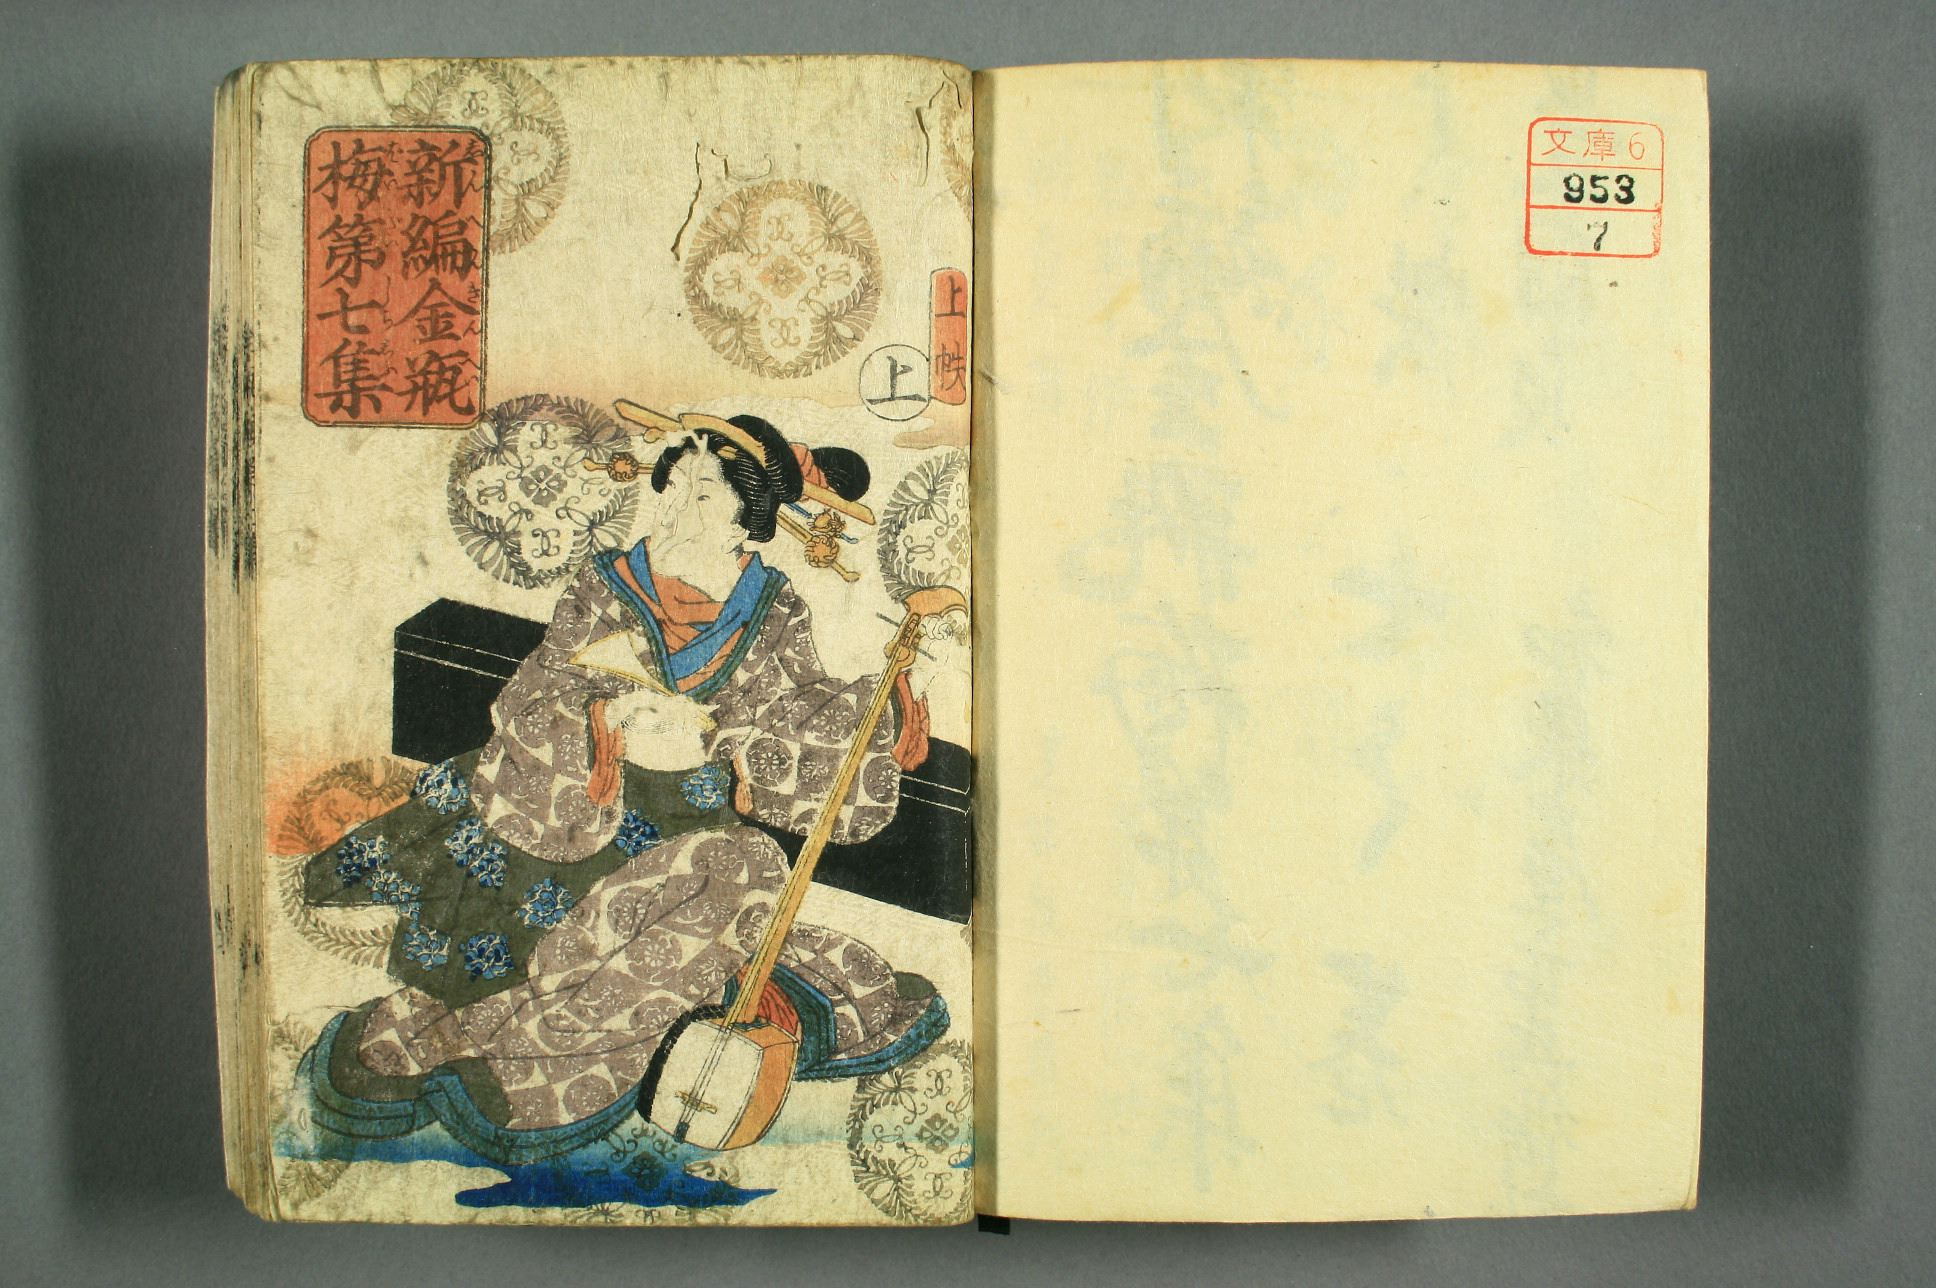 文庫6
953
7
新編金瓶
梅第七集
上帙
上